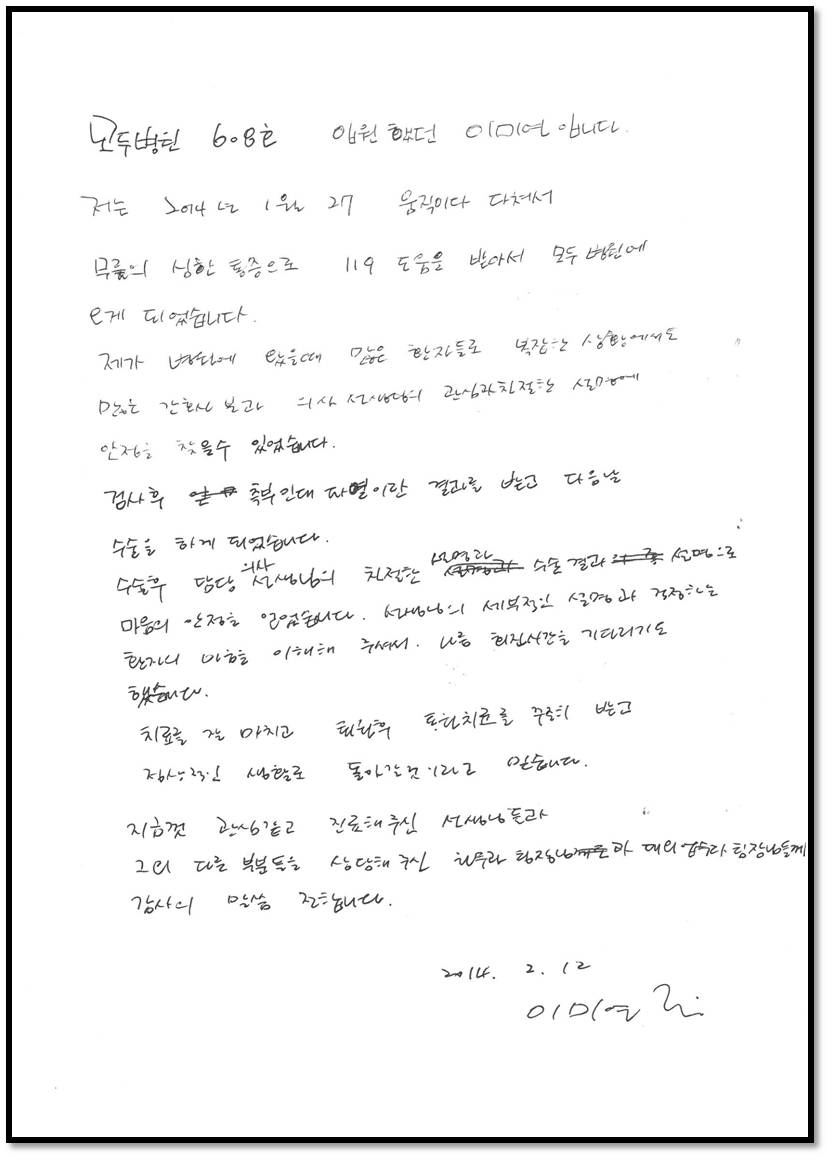 모두병원 608호 입원했던 이미연입니다.
저는 2014년 1월 27 움직이다 다쳐서
무릎의 심한 통증으로 119 도움을 받아서 모두병원에
오게 되었습니다.
제가 병원에 왔을때 많은 환자들로 복잡한 상황에서도
많은 간호사 의사 선생님의 관심과 친절한 설명에
안정을 찾을수 있었습니다.
검사후 측부인대 파열이란 결과를 받고 다음날
수술을 하게 되었습니다.
수술후 담당 의사 선생님의 친절한 설명과 수술결과 설명으로
마음의 안정을 얻었습니다. 선생님의 세부적인 설명과 걱정하는
환자의 마음을 이해해 주셔서. 나름 회진시간을 기다리기도
했습니다.
치료를 잘 마치고 퇴원후 통원치료를 꾸준히 받고
정상적인 생활로 돌아갈것이라고 믿습니다.
지금껏 관심갖고 진료해주신 선생님들과
그외 다른 부분들을 상담해주신 원무과 팀장님과 대외 팀장님들께
감사의 말씀 전합니다.
2014. 2. 12
이미연